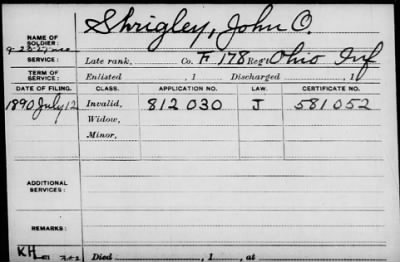 NAME OF SOLDIER: Shrigley, John O.
SERVICE: Late rank, Co. F 178 Reg't Ohio Inf
TERM OF SERVICE: Enlisted , 1 Discharged , 1
DATE OF FILING. CLASS. APPLICATION NO. LAW. CERTIFICATE NO.
1890 July 12 Invalid, 812 030 J 581 052
Widow,
Minor,
ADDITIONAL SERVICES:
REMARKS:
KH
Died , 1 , at